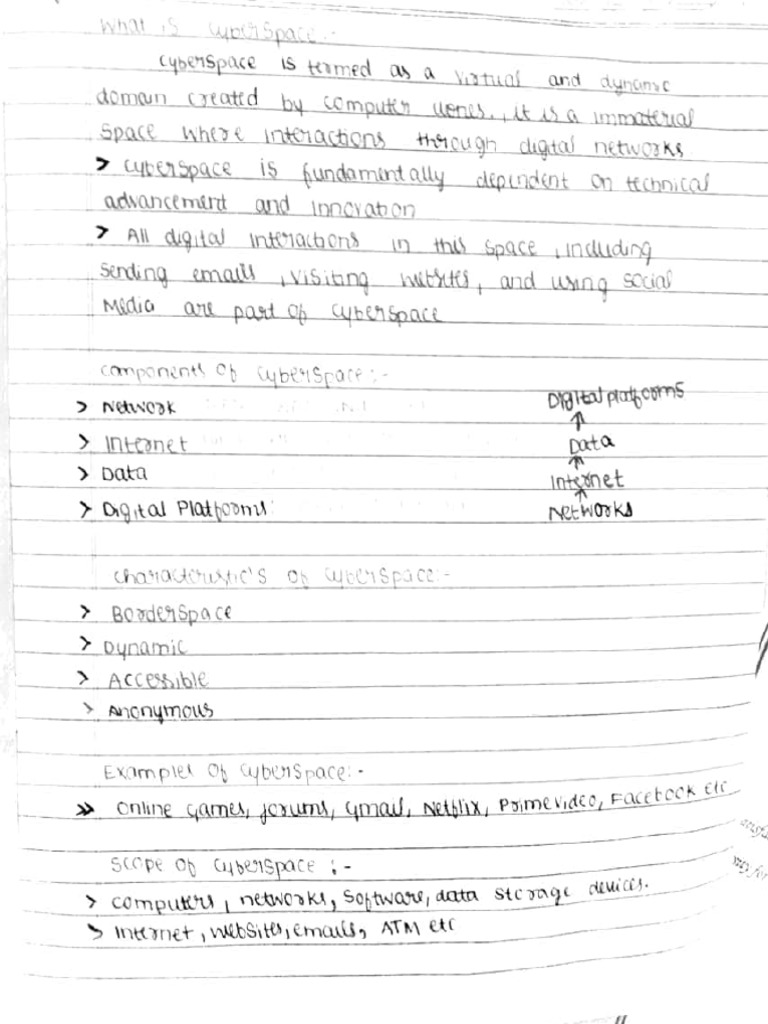 What is cyberspace :-
cyberspace is termed as a virtual and dynamic
domain created by computer uones., it is a immaterial
space where interactions through digital networks
> cyberspace is fundamentally dependent on technical
advancement and innovation
> All digital interactions in this space, including
sending emails, visiting websites, and using social
Media are part of cyberspace
components of cyberspace :-
> Network
> Internet
> Data
> Digital Platforms
Digital platforms
↑
Data
↑
Internet
↑
Networks
characteristic's of cyberspace :-
> Borderspace
> Dynamic
> Accessible
> Anonymous
Examples of cyberspace :-
>> online games, forums, Gmail, Netflix, Primevideo, Facebook etc
scope of cyberspace :-
> computers, networks, software, data storage devices.
> internet, websites, emails, ATM etc